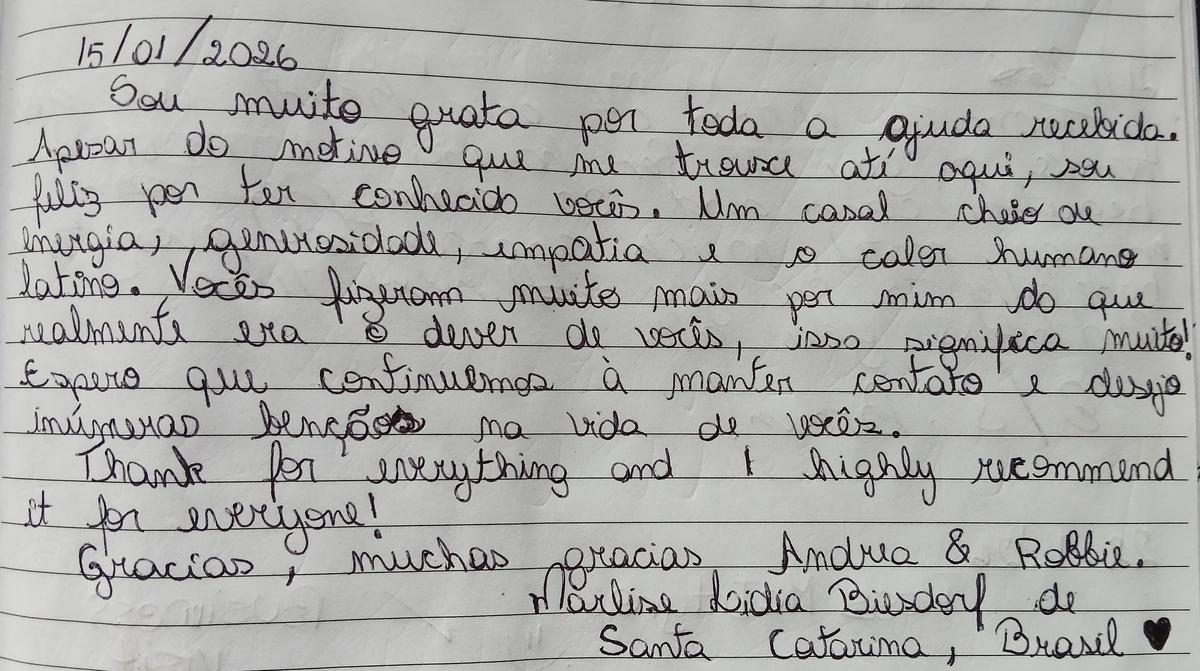 15/01/2026
Sou muito grata por toda a ajuda recebida.
Apesar do motivo que me trouxe até aqui, sou
feliz por ter conhecido vocês. Um casal cheio de
energia, generosidade, empatia e o calor humano
latino. Vocês fizeram muito mais por mim do que
realmente era o dever de vocês, isso significa muito!
Espero que continuemos à manter contato e desejo
inúmeras bençãos na vida de vocês.
Thank for everything and I highly recommend
it for everyone!
Gracias, muchas gracias Andrea & Robbie.
Marlise Lidia Biesdorf de
Santa Catarina, Brasil ♥